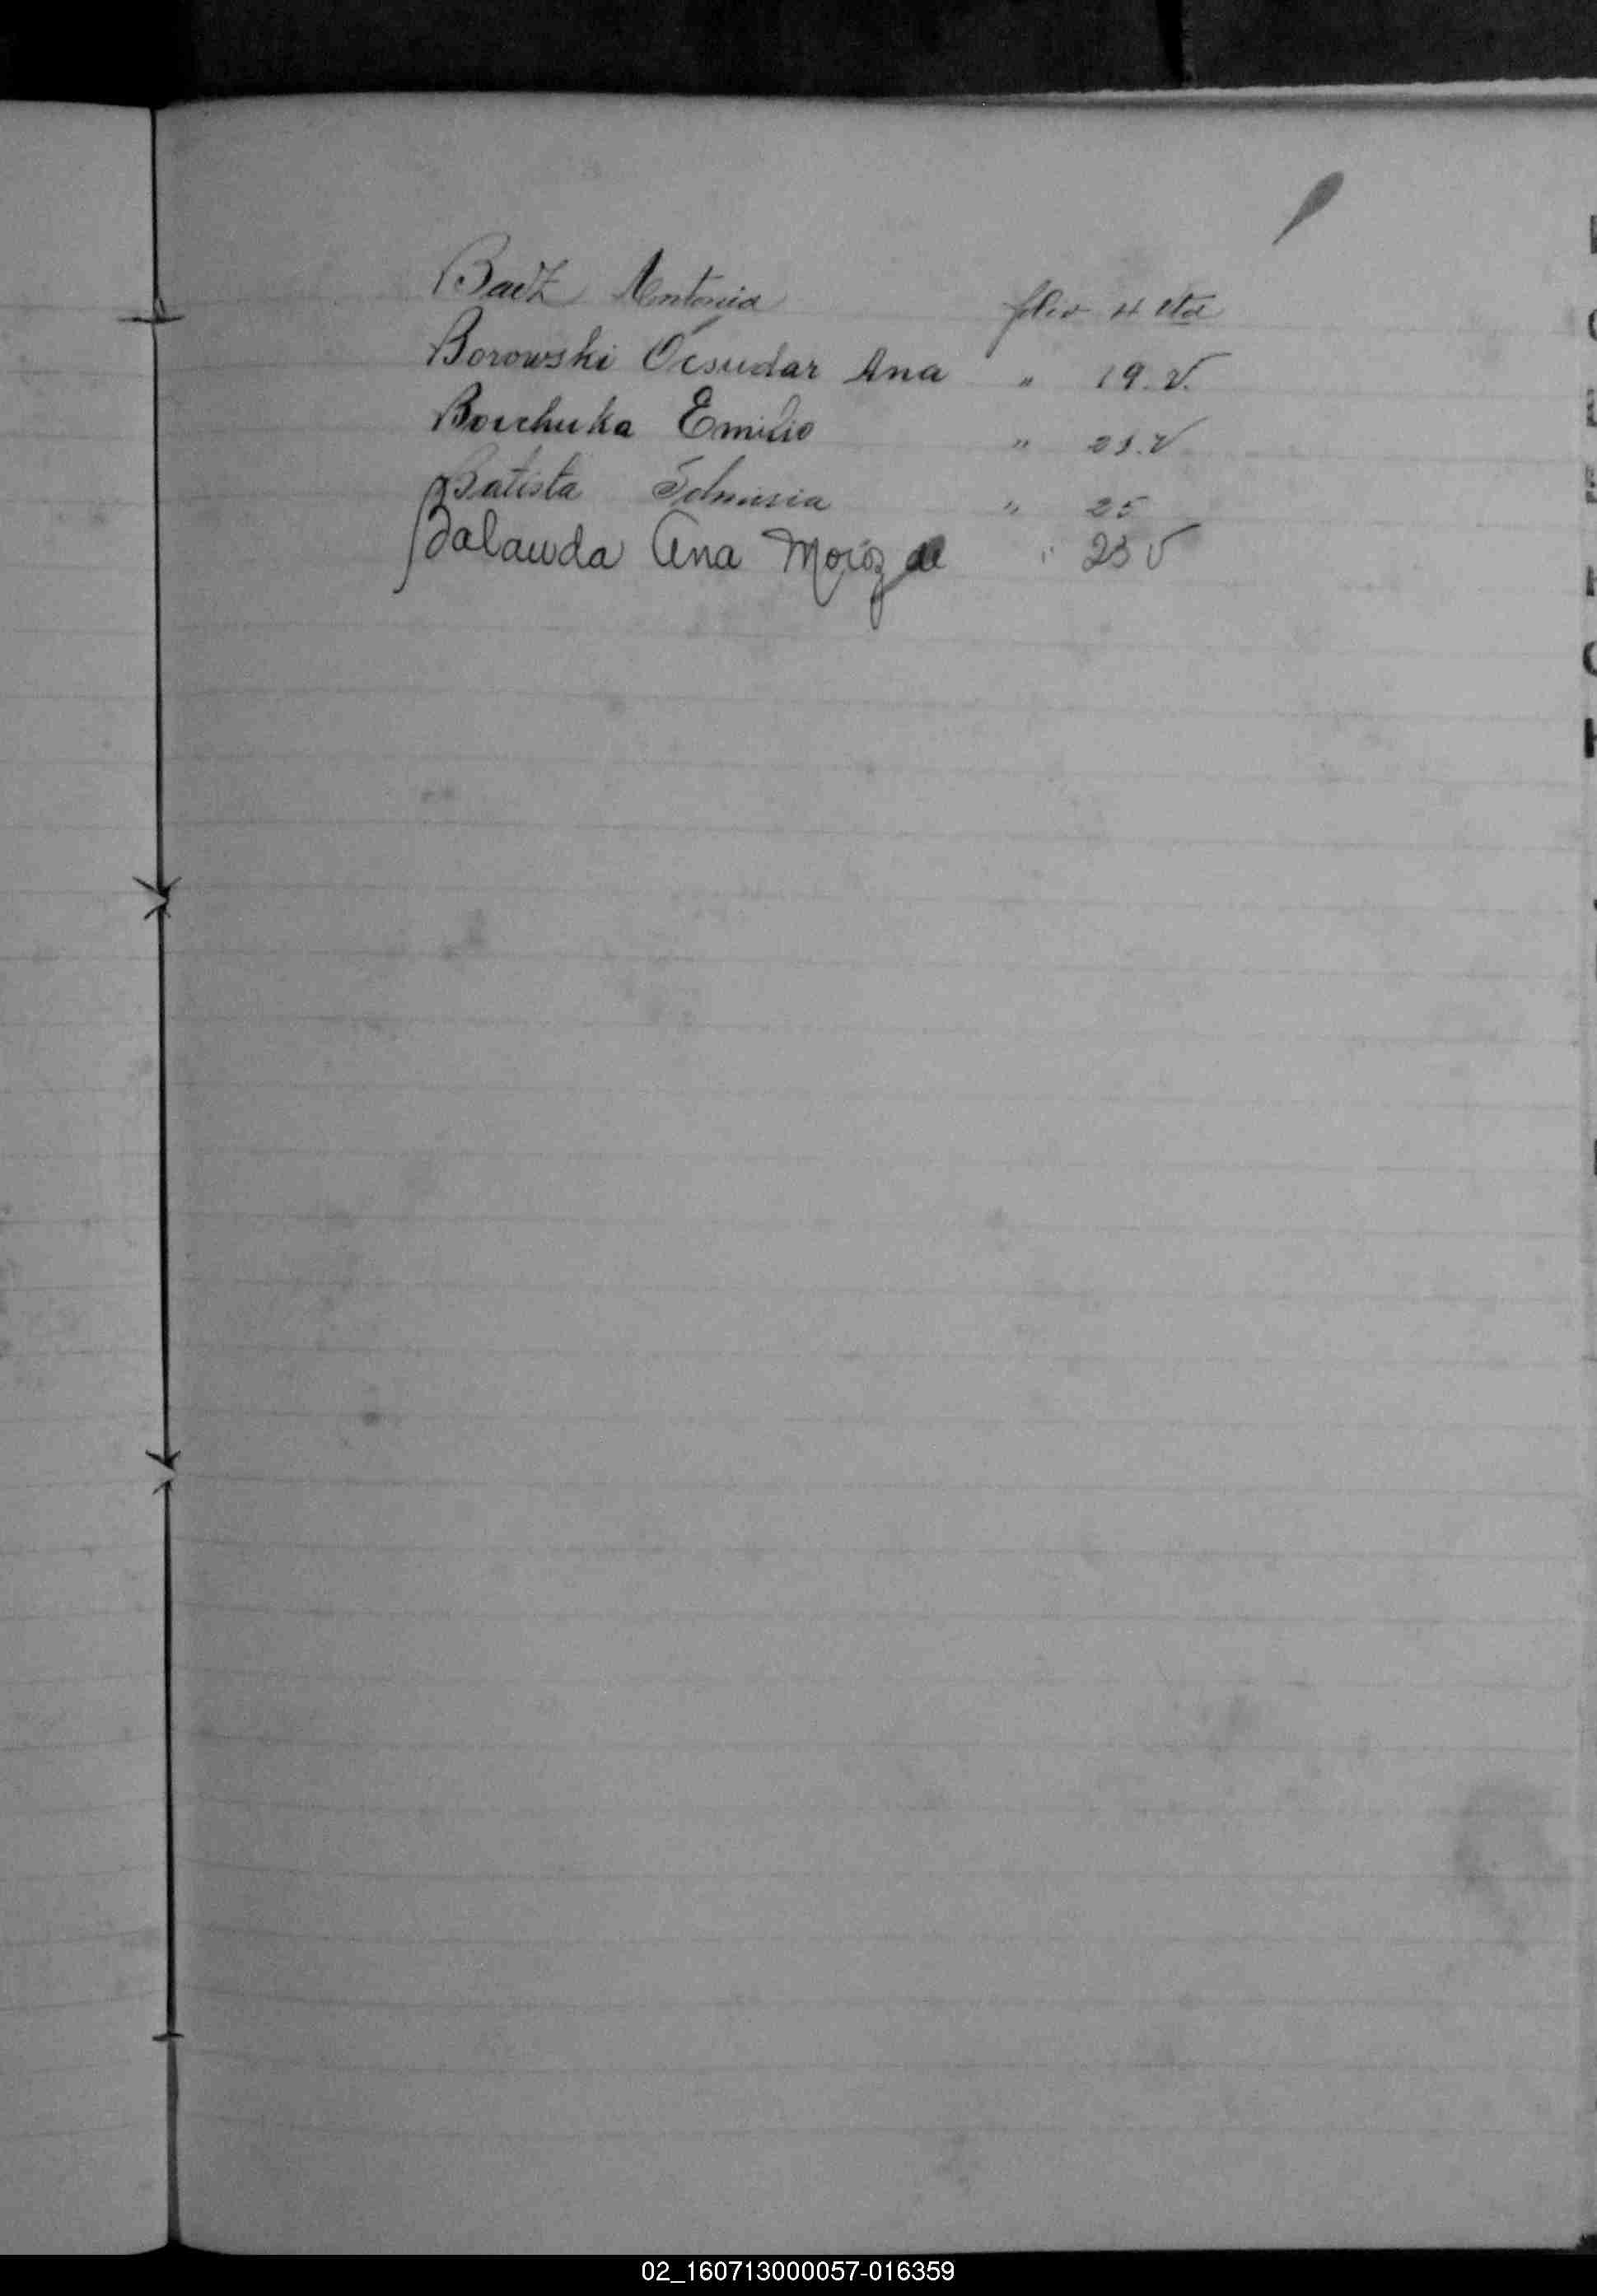 Badz Antonia folio 4 vta
Borowski Ocsudar Ana " 19. V.
Borchuka Emilio " 21. V
Batista " 25
Balauda Ana Moroz de " 23 V
02_160713000057-016359